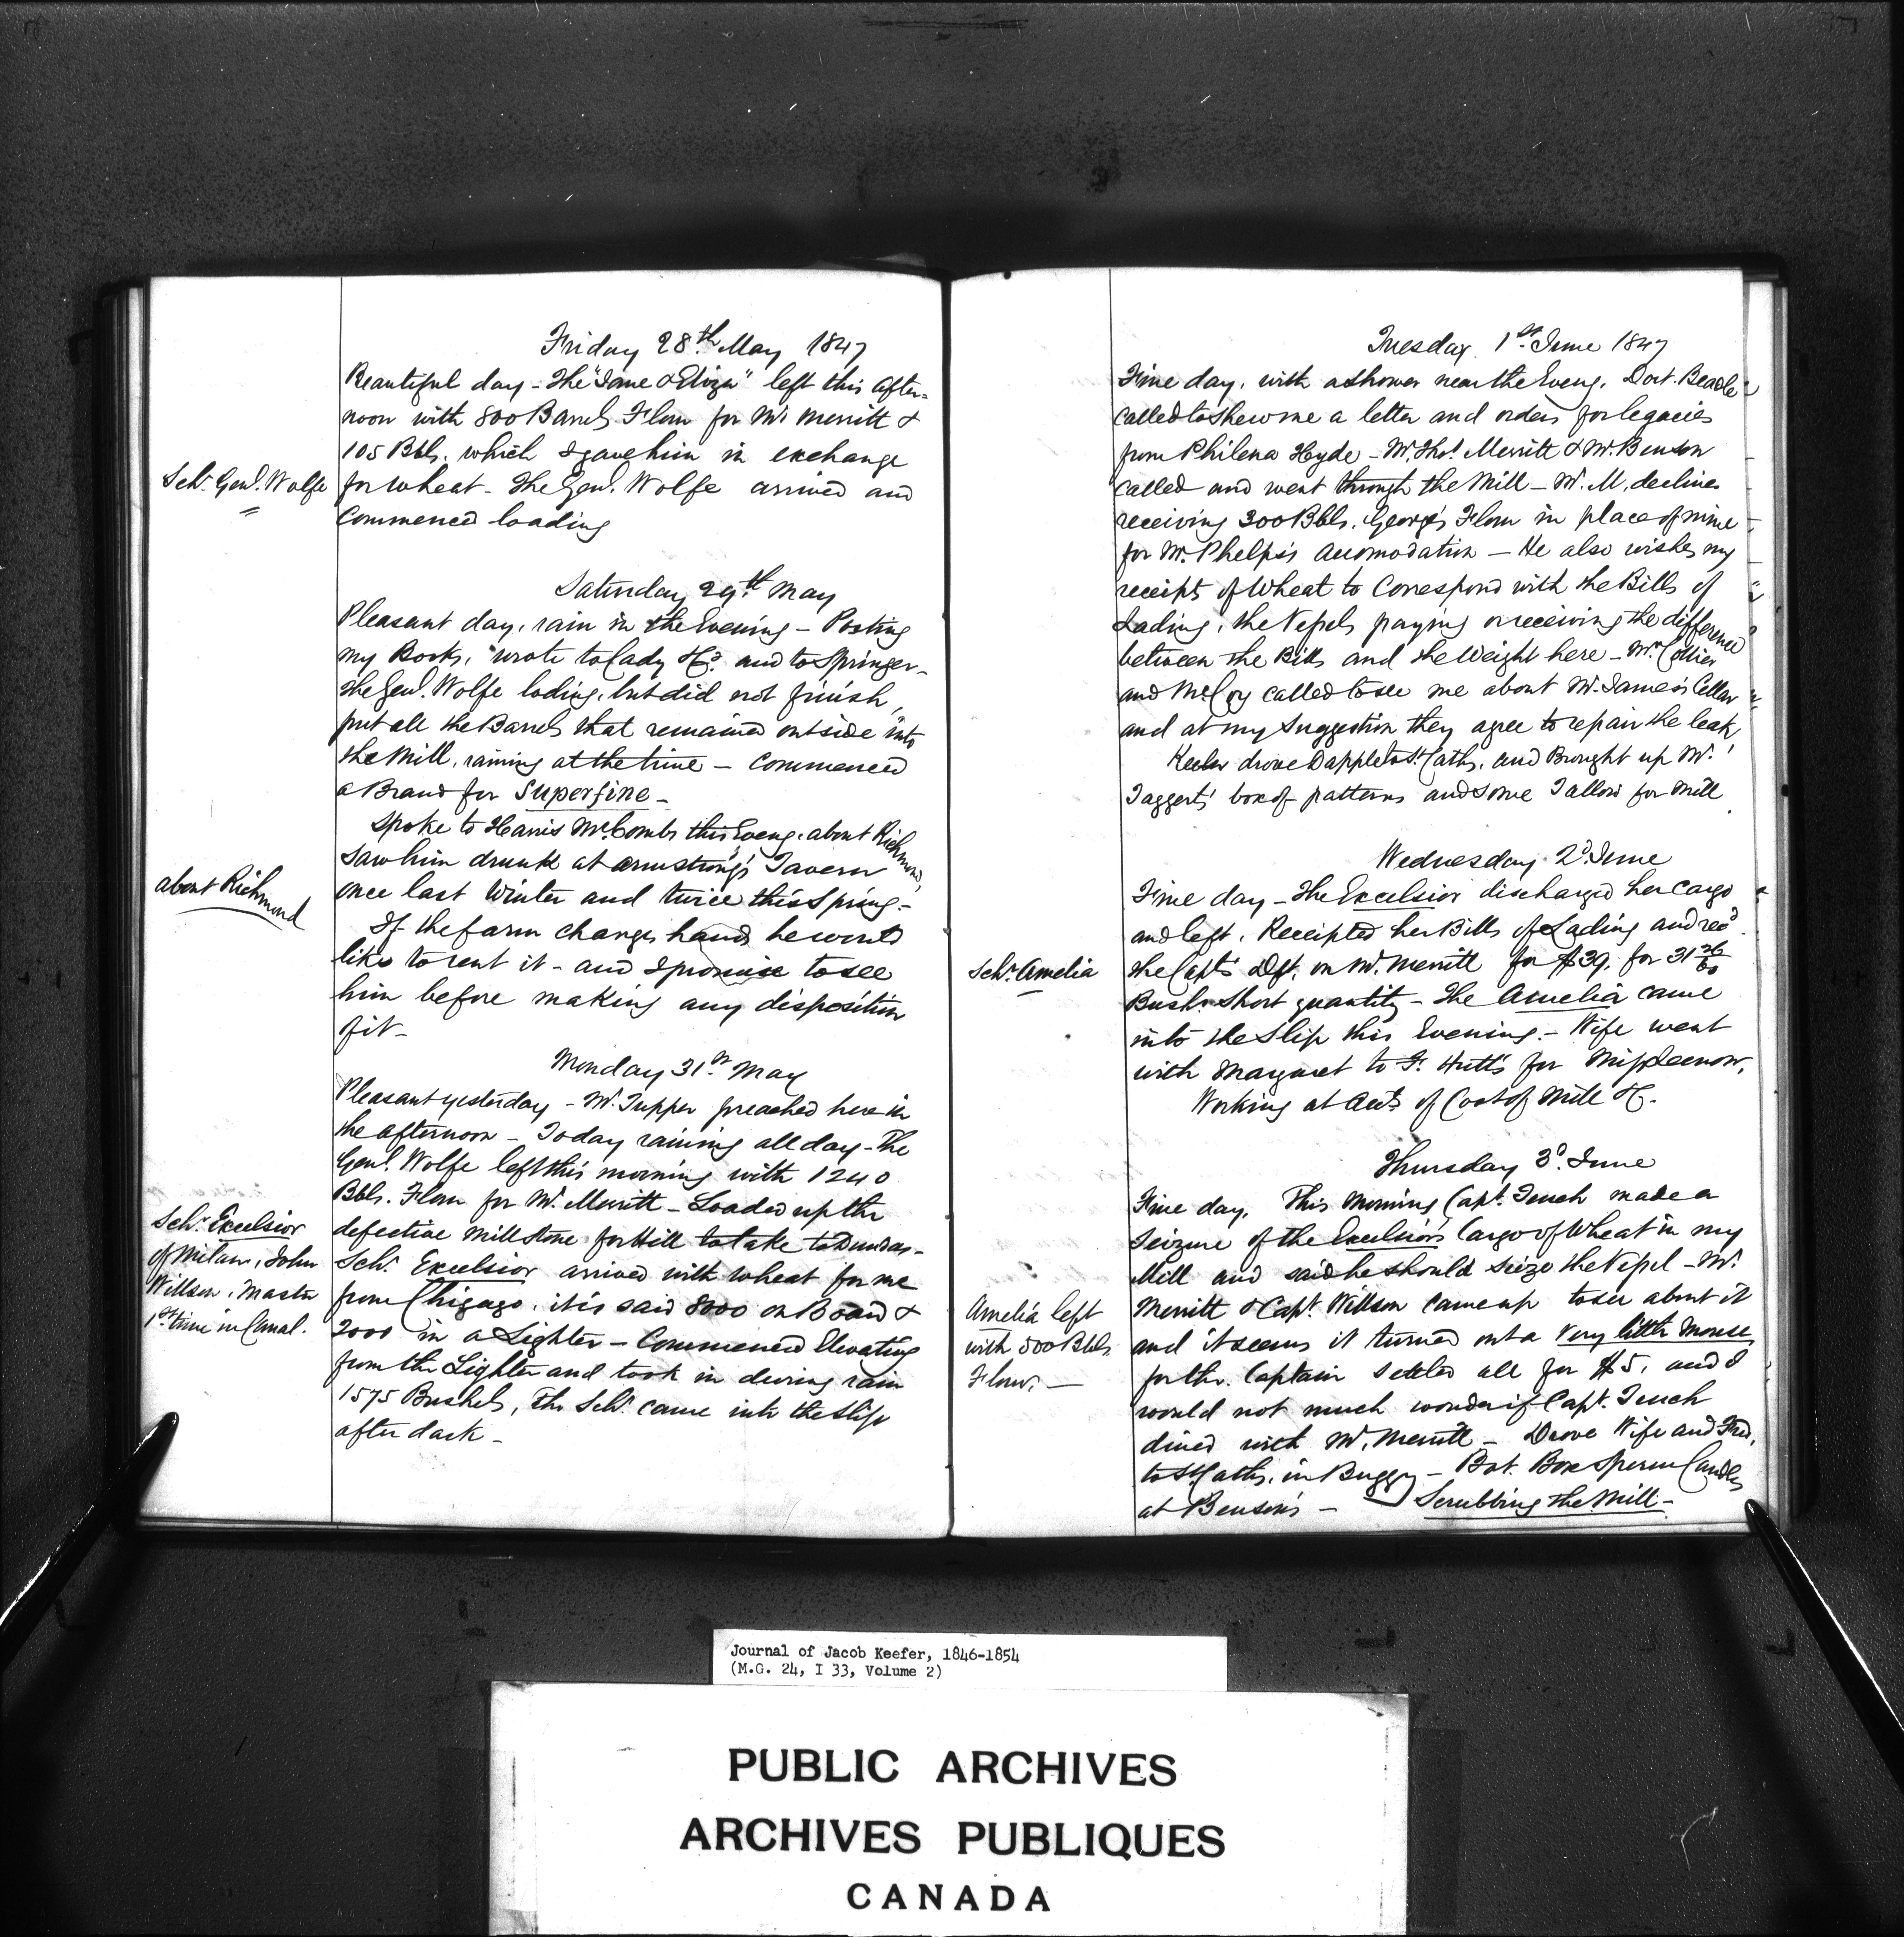 Friday 28th May 1847
Beautiful day - The "Jane & Eliza" left this after=
noon with 800 Barrels Flour for Mr Merritt &
105 Bbls. which I gave him in exchange
Schr. Genl. Wolfe
for wheat - The Genl. Wolfe arrived and
Commenced loading
Saturday 29th May
Pleasant day, rain in the Evening - Posting
my Books, wrote to Cady &Co. and to Springer -
the Genl. Wolfe loding, but did not finish,
put all the Barrels that remained outside into
the Mill, raining at the time - Commenced
a Brand for Superfine -
Spoke to Harris McCombs this Eveng. about Richmond,
Saw him drunk at Armstrong's Tavern
about Richmond
once last Winter and twice this Spring. -
If the farm changes hands he would
like to rent it - and I promise to see
him before making any disposition
of it -
Monday 31st May
Pleasant yesterday - Mr. Tupper preached here in
the afternoon - Today raining all day - The
Genl. Wolfe left this morning with 1240
Bbls. Flour for Mr. Merritt - Loaded up the
defective Millstone for Hill to take to Dundas -
Schr. Excelsior
of Milan, John
Willson, Master
1st time in Canal.
Schr. Excelsior arrived with wheat for me
from Chigago, it is said 8000 on Board &
2000 in a Lighter - Commenced Elevating
from the Lighter and took in during rain
1575 Bushels, The Schr. came into the Slip
after dark -
Tuesday 1st June 1847
Fine day, with a shower near the Eveng. Doct. Beadle
called to shew me a letter and orders for legacies
from Philena Hyde - Mr. Thos. Merritt & Mr. Benson
called and went through the Mill - Mr. M. declines
receiving 300 Bbls. George's Flour in place of mine
for Mr. Phelps's Accomodation - He also wishes my
receipts of Wheat to Correspond with the Bills of
Lading, the Vessels paying or receiving the difference
between the Bills and the Weight here - Mr. Collier
and McCoy called to see me about Mr. James's Cellar
and at my Suggestion they agree to repair the leak
Keeler drove Dapple to St. Caths. and Brought up Mr.
Taggerts' box of patterns and some Tallow for Mill
Wednesday 2d. June
Fine day - The Excelsior discharged her Cargo
and left. Receipted her Bills of Lading and recd.
Schr. Amelia
the Capts. Dft. on Mr. Merritt for $39. for 31 26/60
Bush. short quantity - The Amelia came
into the Slip this Evening. - Wife went
with Margaret to F. Hutt's for
Working at Acts. of Cost of Mill &c.
Thursday 3d. June
Fine day. This Morning Capt. Tench made a
Seizure of the Excelsior's Cargo of Wheat in my
Mill and said he should Seize the Vessel - Mr.
Amelia left
with 500 Bbls
Flour. -
Merritt & Capt. Willson came up to see about it
and it seems it turned out a Very little Mouse
for the Captain settled all for $5. and I
would not much wonder if Capt. Tench
dined with Mr. Merritt - Drove Wife and Fred.
to St. Caths. in Buggy - Bot. Box Sperm Candles
at Benson's - Scrubbing the Mill -
Journal of Jacob Keefer, 1846-1854
(M.G. 24, I 33, Volume 2)
PUBLIC ARCHIVES
ARCHIVES PUBLIQUES
CANADA